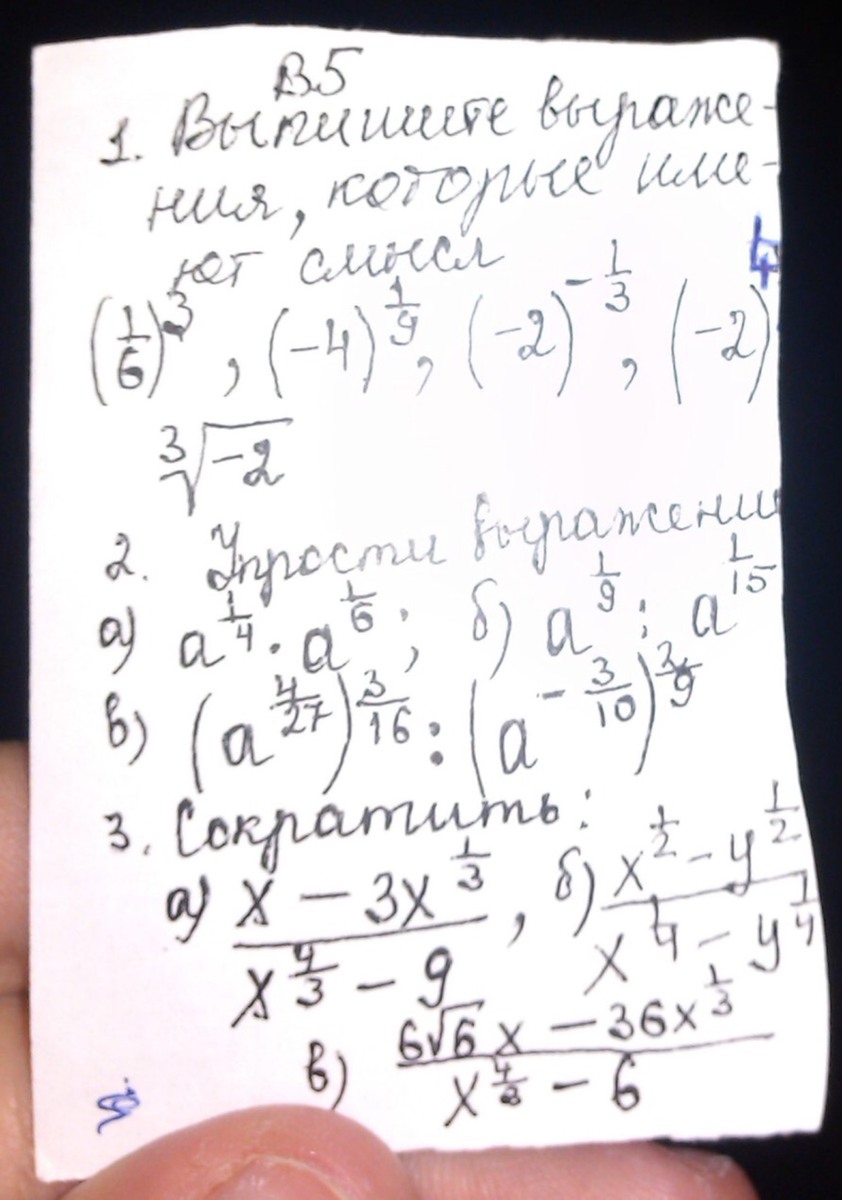 В5
1. Выпишите выраже-
ния, которые име-
ют смысл
(1/6)^3, (-4)^(1/9), (-2)^(-1/3), (-2)^4
∛(-2)
2. Упрости выражени
а) a^(1/4) · a^(1/6); б) a^(1/9) : a^(1/15)
в) (a^(4/27))^(3/16) : (a^(-3/10))^(2/9)
3. Сократить:
а) (x - 3x^(1/3))/(x^(4/3) - 9), б) (x^(1/2) - y^(1/2))/(x^(1/4) - y^(1/4))
в) (6√6 x - 36x^(1/3))/(x^(4/3) - 6)